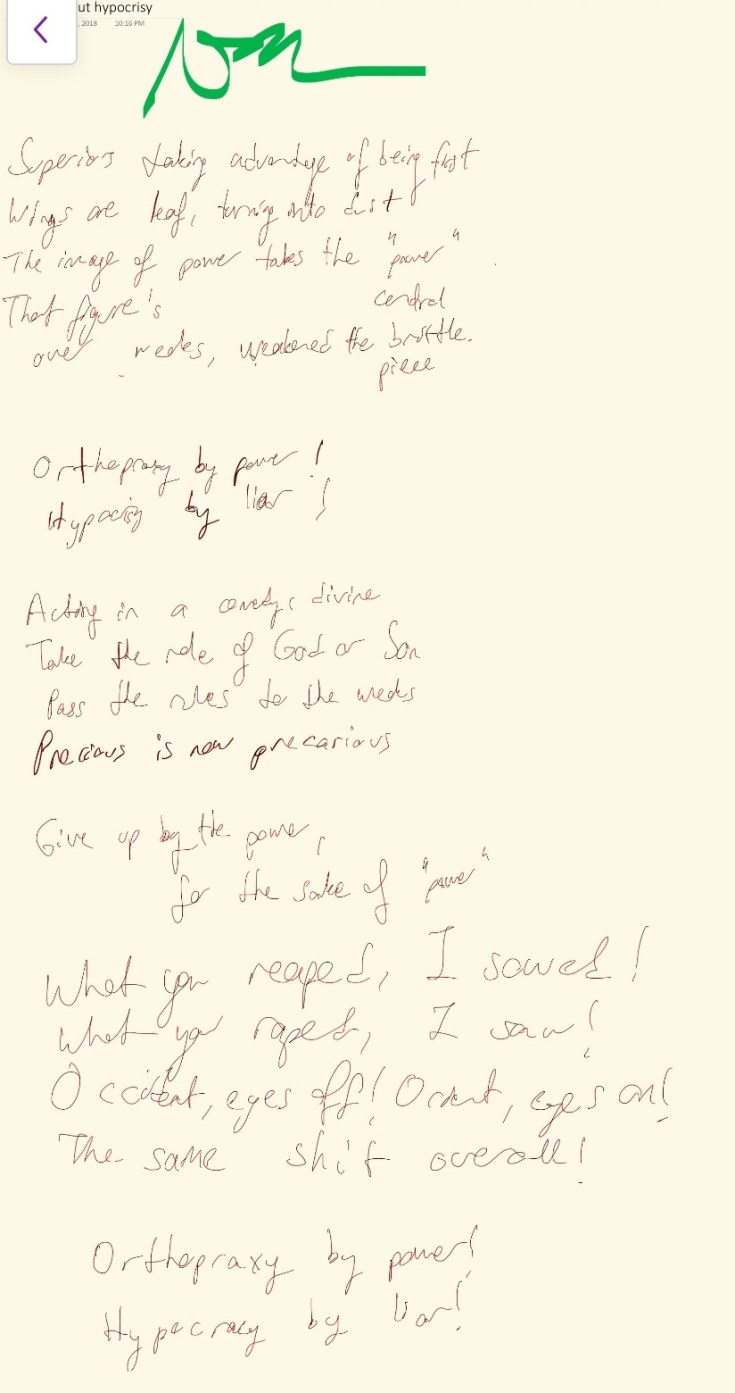 ut hypocrisy
, 2018 10:16 PM
Superiors taking advantage of being first
Wings are leaf, turning into dust
The image of power takes the "power"
That figure's central
over weaks, weakened the brittle.
piece
Orthepraxy by power!
Hypocrisy by liar!
Acting in a comedy, divine
Take the role of God or Son
Pass the rules to the weaks
Precious is now precarious
Give up by the power,
for the sake of "power"
What you reaped, I sowed!
What you raped, I saw!
Occident, eyes off! Orient, eyes on!
The same shit overall!
Orthopraxy by power!
Hypocrasy by liar!